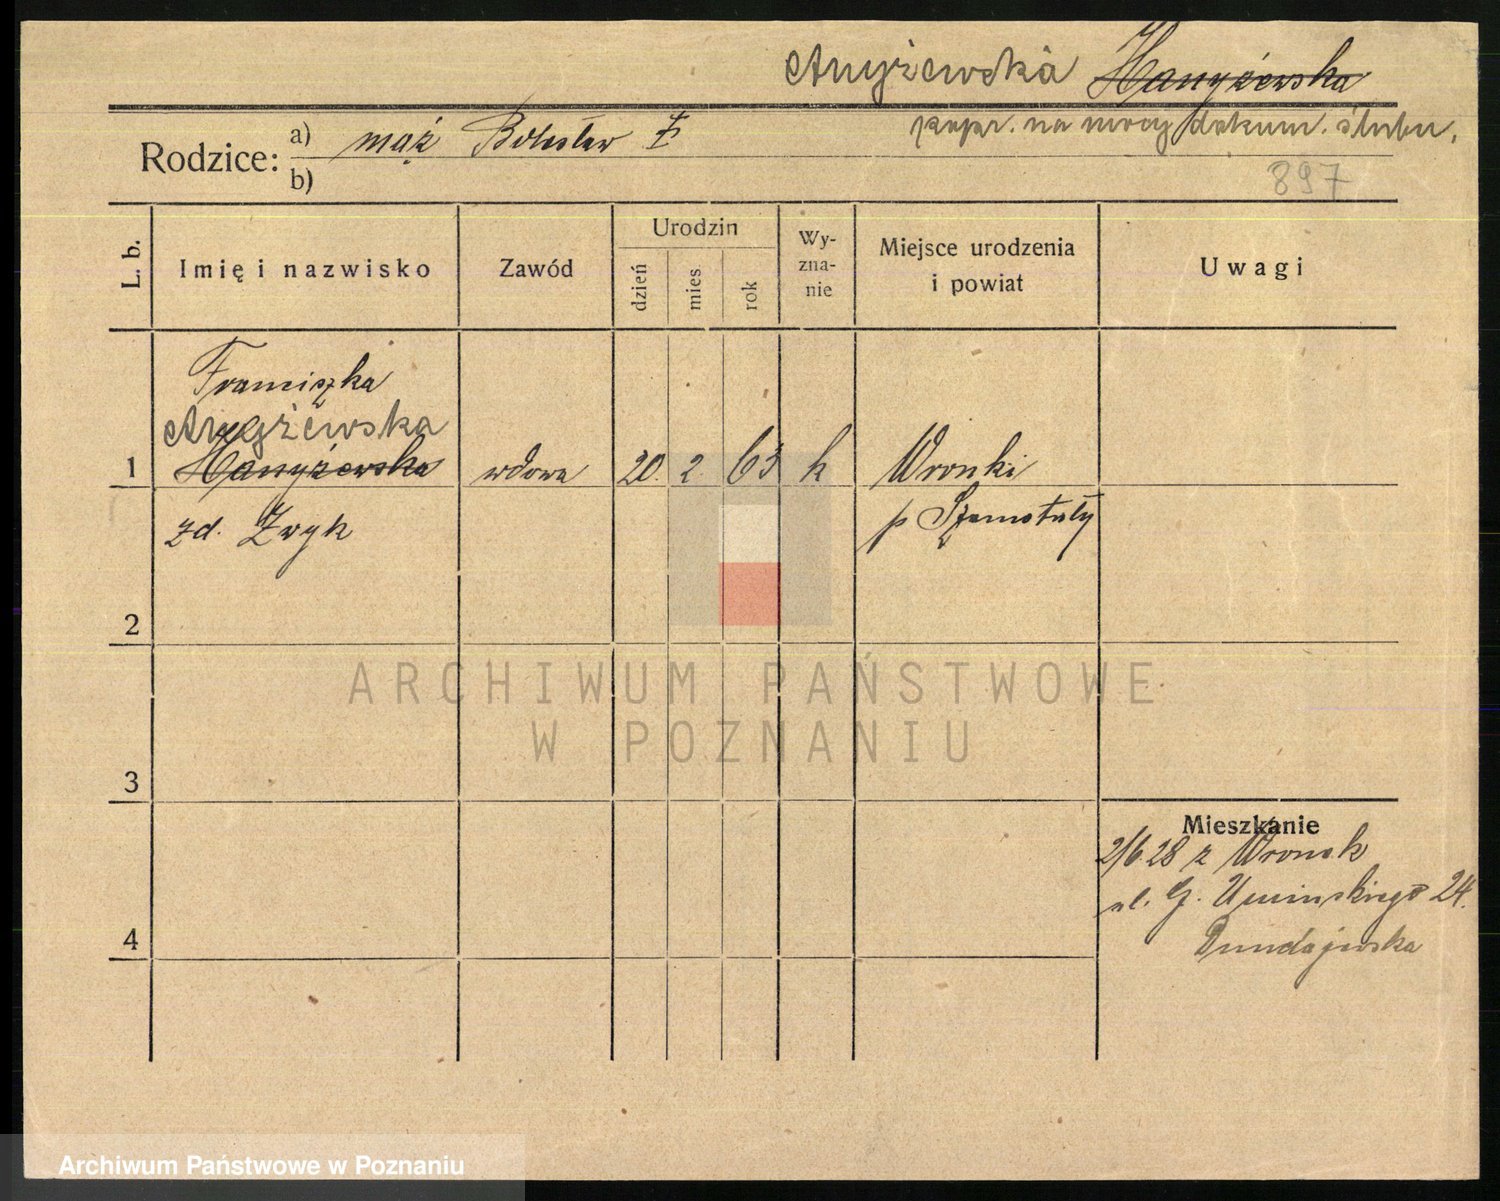 Anyżewska Hanyżewska
popr. na mocy dokum. ślubu.
Rodzice: a) mąż Bolesław Ż
b)
897
L. b.
Imię i nazwisko
Zawód
Urodzin
dzień
mies
rok
Wy-
zna-
nie
Miejsce urodzenia
i powiat
Uwagi
Franciszka
Anyżewska
1 Hanyżewska wdowa 20. 2. 63 k Wronki
zd. Żwyk p Szamotuły
2
ARCHIWUM PAŃSTWOWE
W POZNANIU
3
Mieszkanie
2/6 28 z Wronek
ul. G. Umińskiego 24.
4
Archiwum Państwowe w Poznaniu